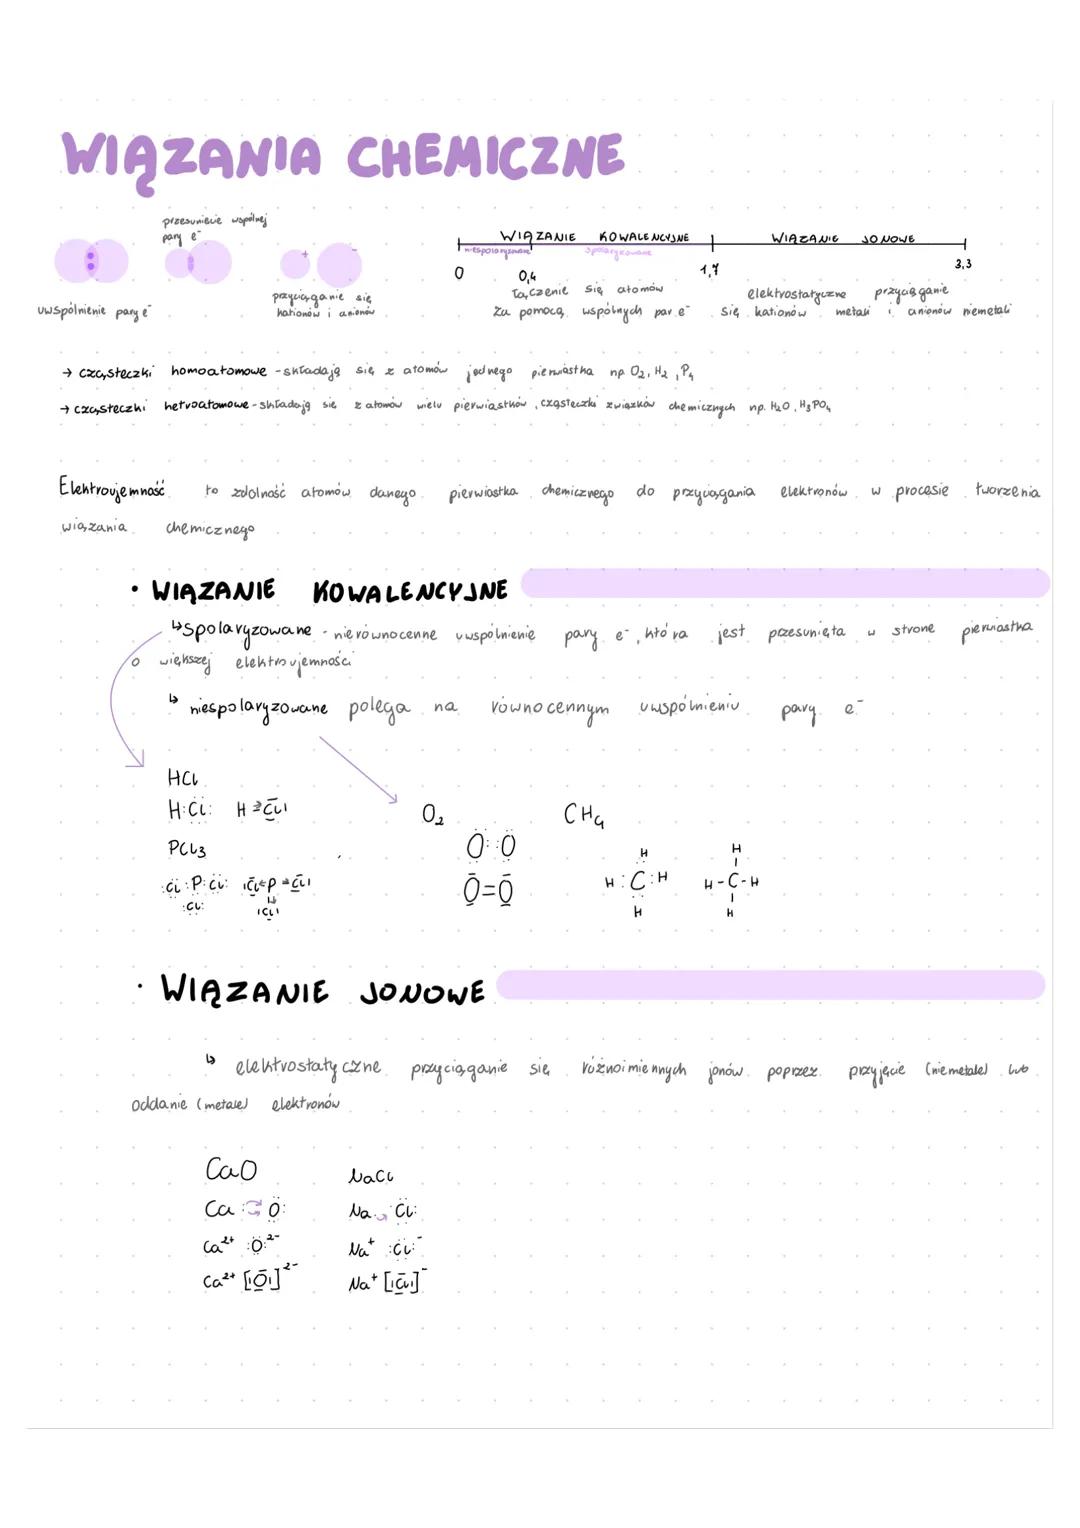 WIĄZANIA CHEMICZNE
przesunięcie wspólnej
pary e⁻
uwspólnienie pary e⁻
+ -
przyciąganie się
kationów i anionów
WIĄZANIE KOWALENCYJNE WIĄZANIE JONOWE
niespolaryzowane spolaryzowane
0 0,4 1,7 3,3
Łączenie się atomów
za pomocą wspólnych par e⁻
elektrostatyczne przyciąganie
się kationów metali i anionów niemetali
→ cząsteczki homoatomowe - składają się z atomów jednego pierwiastka np. O₂, H₂, P₄
→ cząsteczki hetroatomowe - składają się z atomów wielu pierwiastków, cząsteczki związków chemicznych np. H₂O, H₃PO₄
Elektroujemność to zdolność atomów danego pierwiastka chemicznego do przyciągania elektronów w procesie tworzenia
wiązania chemicznego
• WIĄZANIE KOWALENCYJNE
↳ spolaryzowane - nierównocenne uwspólnienie pary e⁻, która jest przesunięta w strone pierwiastka
o większej elektroujemności
↳ niespolaryzowane polega na równocennym uwspólnieniu pary e⁻
HCl
H:Cl: H Cl
PCl₃
:Cl:P:Cl: Cl P Cl
:Cl: Cl
O₂
O::O
O=O
CH₄
H
H:C:H
H
H
H-C-H
H
• WIĄZANIE JONOWE
↳ elektrostatyczne przyciąganie się różnoimiennych jonów poprzez przyjęcie (niemetale) lub
oddanie (metale) elektronów
CaO
Ca: O:
Ca²⁺ :O:²⁻
Ca²⁺ [|O|]²⁻
NaCl
Na. Cl:
Na⁺ :Cl:⁻
Na⁺ [|Cl|]⁻